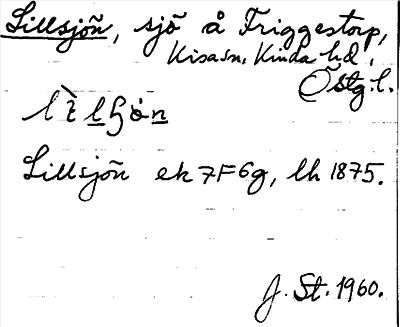 Lillsjön, sjö å Friggestorp,
Kisa sn, Kinda hd,
Östg.l.
Lillsjön ek 7F6g, lh 1875.
J. St. 1960.